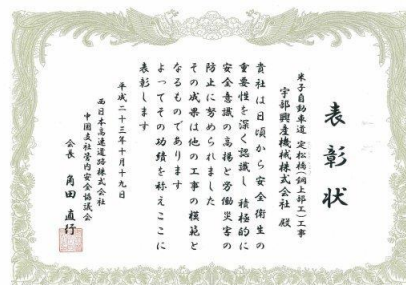 表彰状
米子自動車道 定松橋(鋼上部工)工事
宇部興産機械株式会社 殿
貴社は日頃から安全衛生の
重要性を深く認識し積極的に
安全意識の高揚と労働災害の
防止に努められました
その成果は他の工事の模範と
なるものであります
よってその功績を称えここに
表彰します
平成二十三年十月十九日
西日本高速道路株式会社
中国支社管内安全協議会
会長 角田 直行